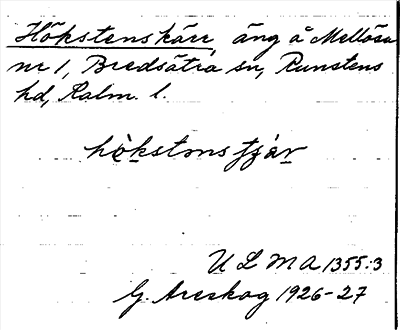 Hökstenskärr, äng å Mellösa
nr 1, Bredsätra sn, Runstens
hd, Kalm. l.
ULMA 1355:3
G. Areskog 1926-27